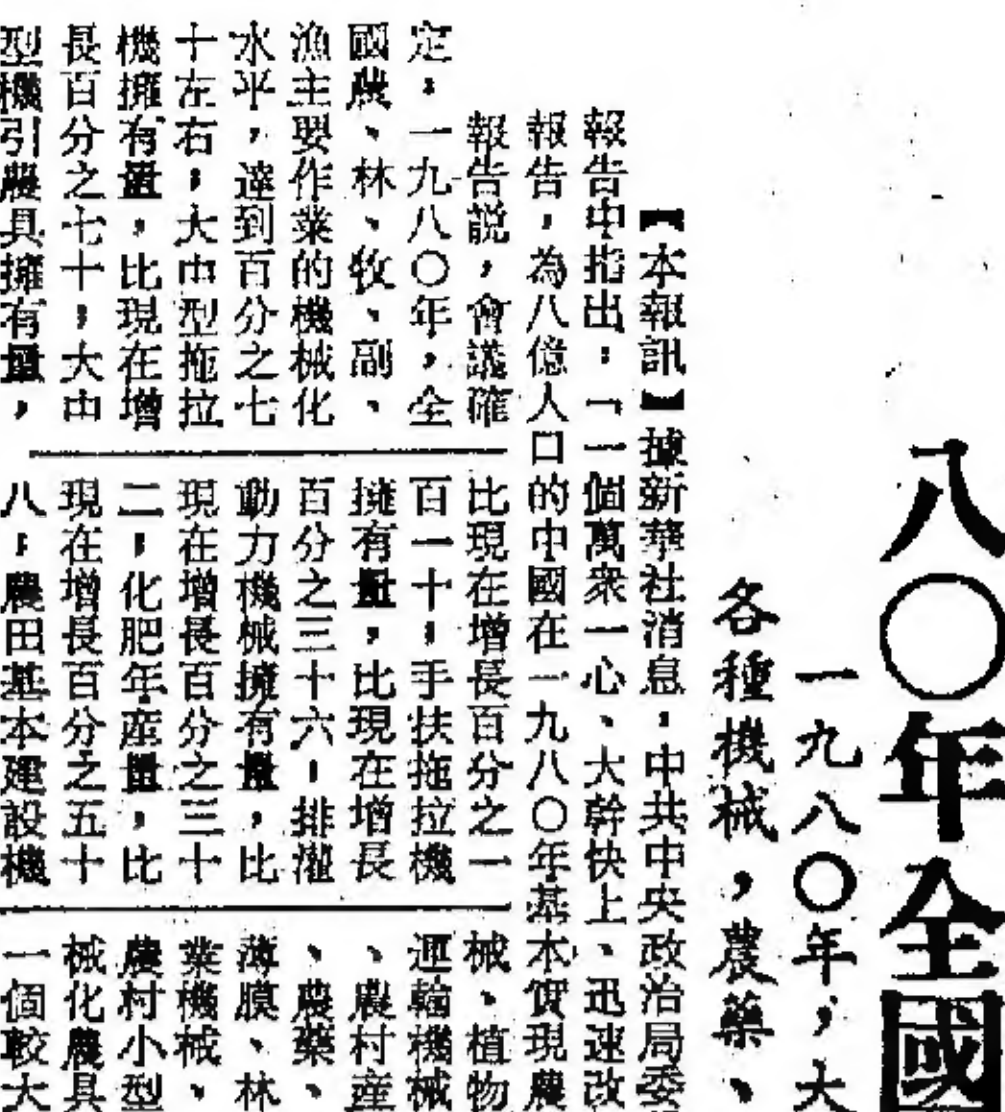 八〇年全國
一九八〇年，大
各種機械，農藥、
【本報訊】據新華社消息，中共中央政治局委
報告中指出：「一個萬衆一心、大幹快上、迅速改
報告，為八億人口的中國在一九八〇年基本實現農
報告說，會議確
定，一九八〇年，全
國農、林、牧、副、
漁主要作業的機械化
水平，達到百分之七
十左右，大中型拖拉
機擁有量，比現在增
長百分之七十，大中
型機引農具擁有量，
比現在增長百分之一
百一十，手扶拖拉機
擁有量，比現在增長
百分之三十六，排灌
動力機械擁有量，比
現在增長百分之三十
二，化肥年産量，比
現在增長百分之五十
八，農田基本建設機
械、植物
運輸機械
、農村産
、農藥、
薄膜、林
業機械、
農村小型
械化農具
一個較大